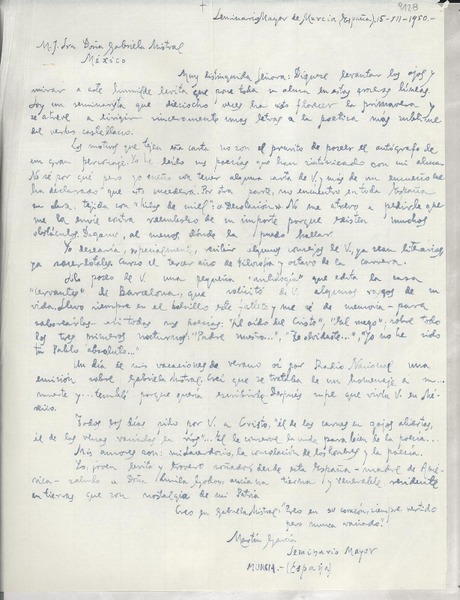 9128
Seminario Mayor de Murcia (España), 15-VII-1950.-
M. I. Sra Doña Gabriela Mistral
México
Muy distinguida Señora: Dígnese levantar los ojos y
mirar a este humilde levita que pone toda su alma en estas groseras líneas.
Soy un seminarista que dieciocho veces ha visto florecer la primavera y
se atreve a dirigir unas letras a la poetisa más sublime
del verbo castellano.
Los motivos que tejen esta carta no son el prurito de poseer el autógrafo de
un gran personaje. Yo he leído sus poesías que han sintonizado con mi alma.
No sé por qué pero yo sueño con tener alguna carta de V. y más de un ensueño me
ha declarado que esto sucederá. Por otra parte, no encuentro en toda España
su obra, tejida con hilos de miel: "Desolación". No me atrevo a pedirle que
me la envíe contra reembolso de su importe porque existen muchos
obstáculos. Dígame, al menos, dónde la puedo hallar.
Yo desearía, especialmente, recibir algunos consejos de V., ya sean literarios,
ya sacerdotales. Curso el tercer año de Filosofía y octavo de la carrera.
Sólo poseo de V. una pequeña "antología" que edita la casa
"Cervantes" de Barcelona, que solicitó de V. algunos rasgos de su
vida. Llevo siempre en el bolsillo este folleto y me sé de memoria - para
saborearlas - casi todas sus poesías: "Al oído del Cristo", "Tal vez", sobre todo
los tres primeros nocturnos: "Padre nuestro...", "Te olvidaste...", "Yo no he sido
tu Pablo absoluto..."
Un día de mis vacaciones de verano oí por Radio Nacional una
emisión sobre Gabriela Mistral. Creí que se trataba de un homenaje a su...
muerte y... temblé porque quería escribirle. Después supe que vivía V. en Mé-
xico.
Todos los días pido por V. a Cristo, "él de las carnes en gajos abiertas,
él de las venas vaciadas en ríos"... Él le conserve la vida para bien de la poesía...
Mis amores son: mi sacerdocio, la consolación de los pobres y la poesía.
Yo, joven levita y trovero soñador, desde esta España - madre de Amé-
rica - saludo a Doña Lucila Godoy, anciana tierna y venerable, residente
en tierras que son nostalgia de mi Patria
Creo en Gabriela Mistral: "Creo en su corazón, siempre vertido
pero nunca vaciado".
Martín García
Seminario Mayor
MURCIA.- (España)